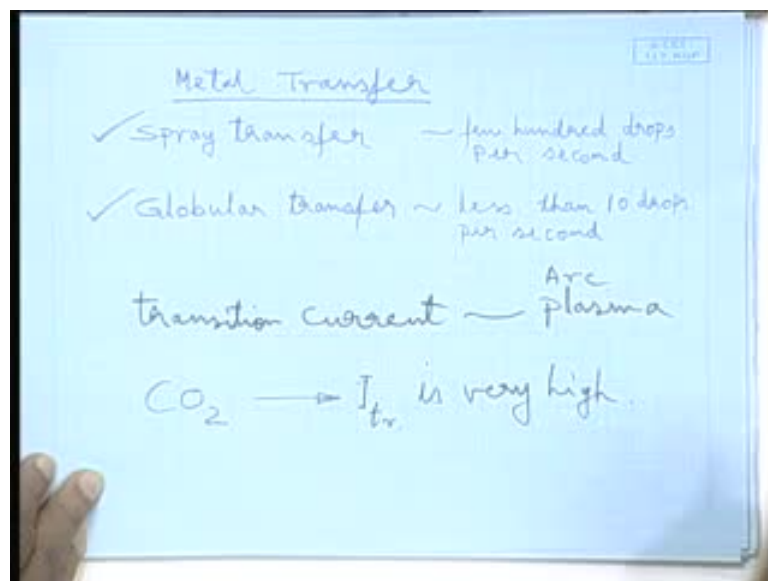 Metal Transfer
✓ Spray transfer ~ few hundred drops
per second
✓ Globular transfer ~ less than 10 drops
per second
Arc
transition current — plasma
CO₂ → I_tr is very high.